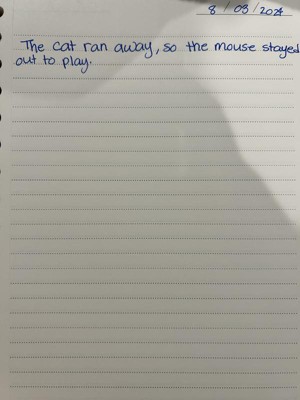 8 / 03 / 2024
The cat ran away, so the mouse stayed
out to play.